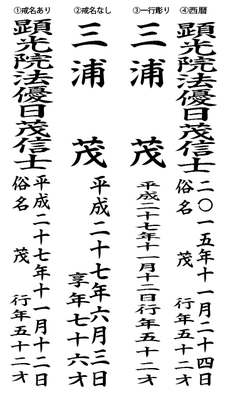 ①戒名あり
顕光院法優日茂信士
平成二十七年十一月十二日
俗名 茂 行年五十二才
②戒名なし
三浦 茂
平成二十七年六月三日
享年七十六才
③一行彫り
三浦 茂
平成二十七年十一月十二日行年五十二才
④西暦
顕光院法優日茂信士
二〇一五年十一月二十四日
俗名 茂 行年五十二才